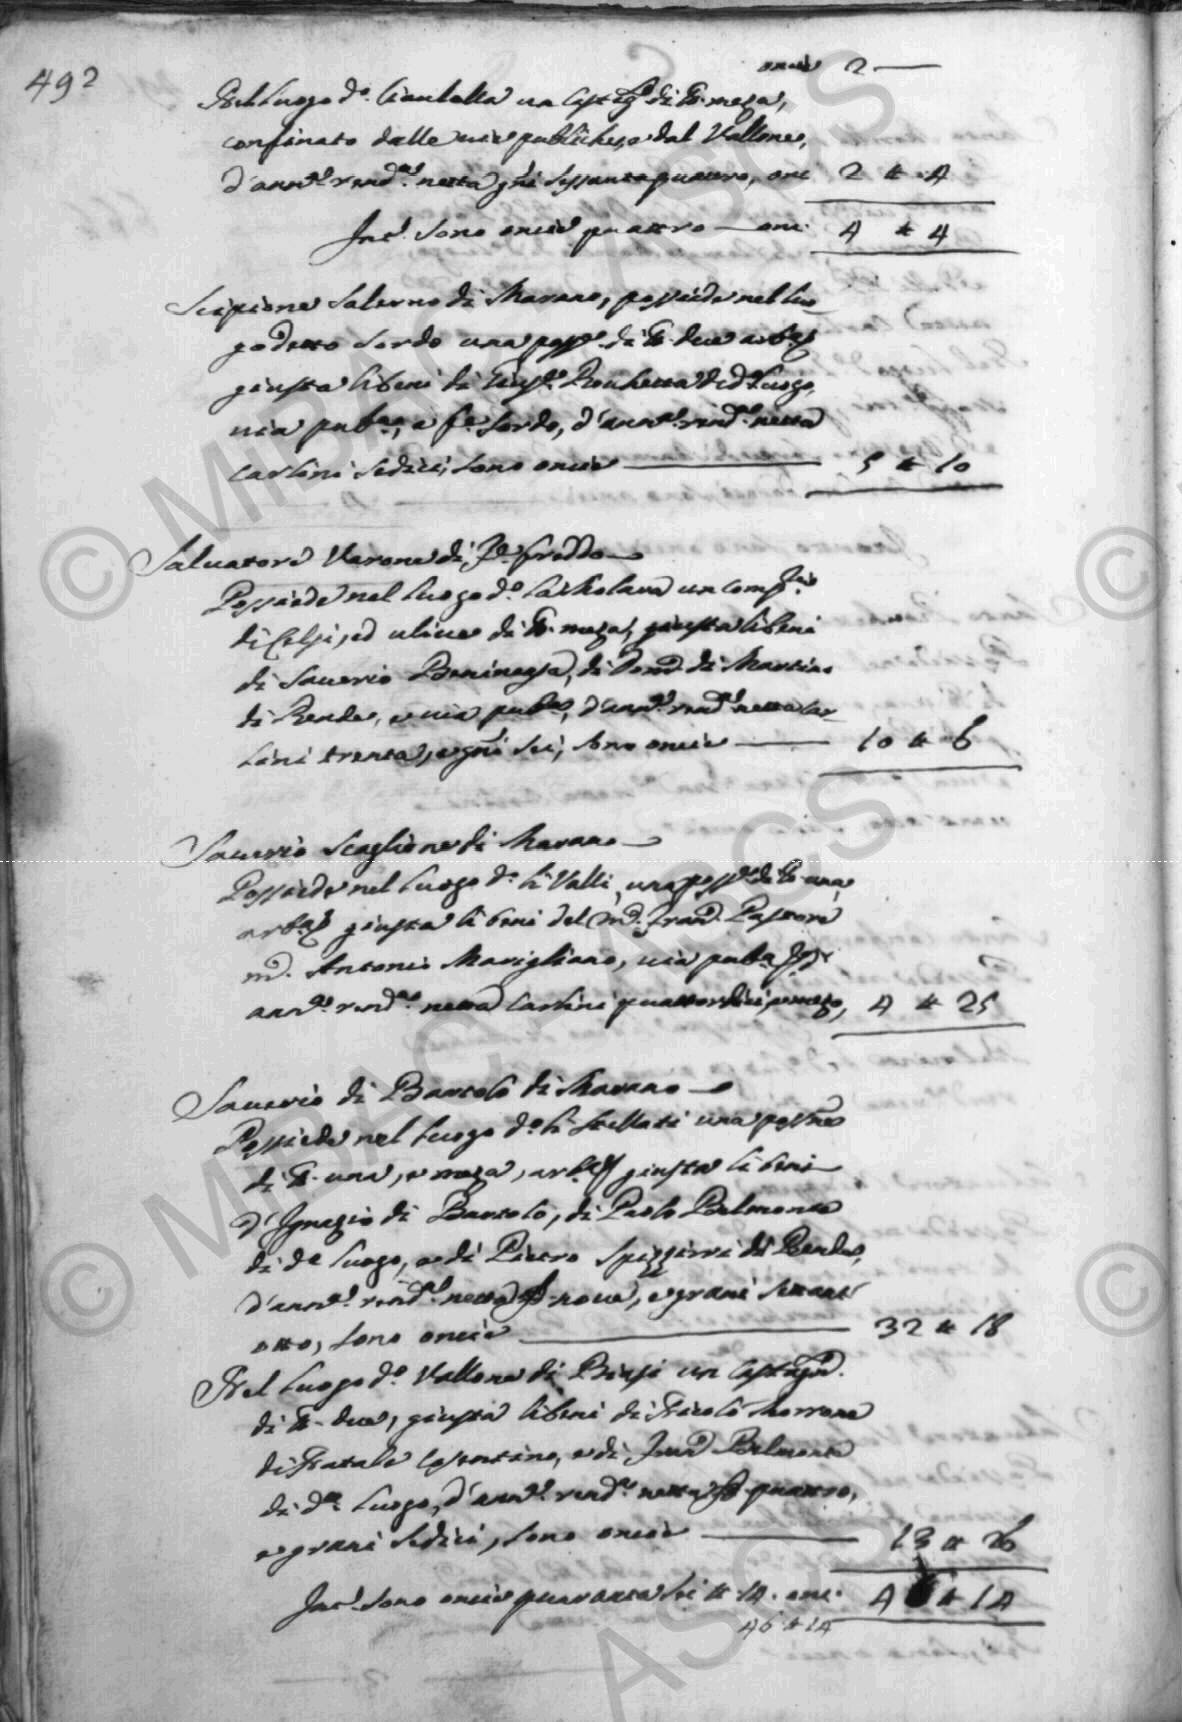 492
oncie 2 —
Nel luogo d.o Ciaulella un Castag.o di T. meza,
confinato dalle vie publiche, e dal Vallone,
d'ann.l rend.a netta g.ni sessanta quattro, onc 2 " 4
Int.o sono oncie quattro — onc. 4 " 4
Scipione Salerno di Marano, possiede nel luo
go detto Sordo una poss.e di T. due arb.ta
giusta li beni di Giu.e Ronchetta di d.o luogo,
via pub.ca, e f.e Sordo, d'ann.l rend.a netta
carlini sedici, sono oncie — 5 " 10
Salvatore Varone di S. Fredo —
Possiede nel luogo d.o la Molara un comp.
di Celsi, ed ulive di T. meza, giusta li beni
di Saverio Beninegsa, di Dom.o di Martino
di Rende, e via pub.ca, d'ann.l rend.a netta car
lini trenta, e g.ni sei, sono oncie — 10 " 6
Saverio Scaglione di Marano —
Possiede nel luogo d.o li Valli, una poss.e di T. una
arb.ta giusta li beni del M. Fran.o Pastore
M. Antonio Marigliano, via pub.ca
ann.l rend.a netta Carlini quattordici, e mezo, 4 " 25
Saverio di Bartolo di Marano —
Possiede nel luogo d.o li Scellati una poss.ne
di T. una, e meza, arb.ta giusta li beni
d'Ignazio di Bartolo, di Paolo Belmonte
di d.o luogo, e di Pietro Spizzirri di Rende,
d'ann.l rend.a netta d. nove, e grani settant
otto, sono oncie — 32 " 18
Nel luogo d.o Vallone di Biasi un Castag.o
di T. due, giusta li beni di Nicolò Morrone
di Natale Cosentino, e di Fran.o Belmonte
di d.o luogo, d'ann.l rend.a netta d. quattro,
e grani sedici, sono oncie — 13 " 26
Int.o sono oncie quaranta sei " 14. onc. 4 " 14
46 " 14
© MiBAC-ASCS
© MiBAC-ASCS
©
©
ASCS